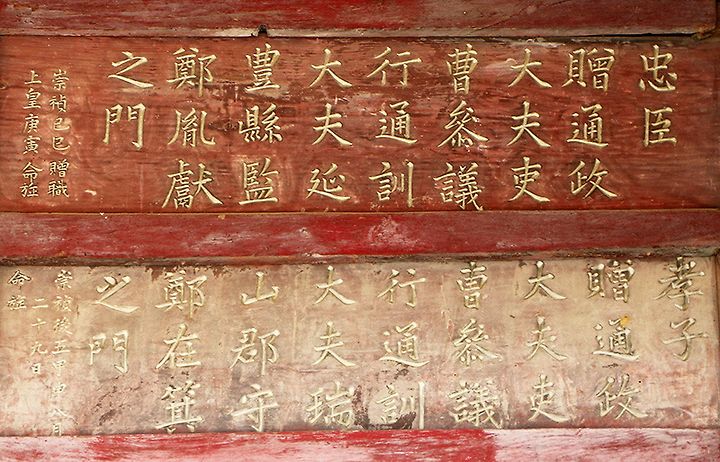 忠臣
贈通政
大夫吏
曹參議
行通訓
大夫延
豊縣監
鄭胤獻
之門
崇禎己巳 贈職
上皇庚寅 命旌
孝子
贈通政
大夫吏
曹參議
行通訓
大夫瑞
山郡守
鄭在箕
之門
崇禎後五甲申八月
二十九日
命旌